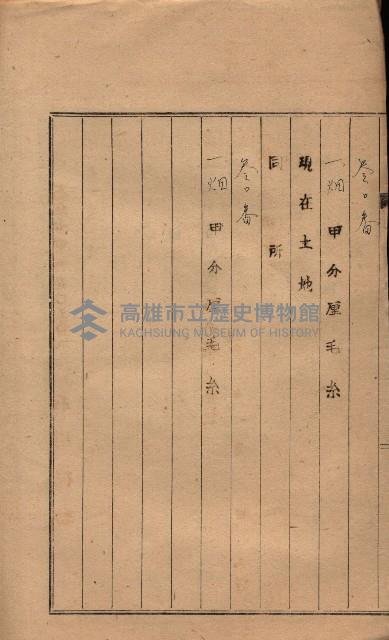 番
一畑 甲分厘毛糸
現在土地
同所
番
一畑 甲分厘毛糸
高雄市立歷史博物館
KAOHSIUNG MUSEUM OF HISTORY